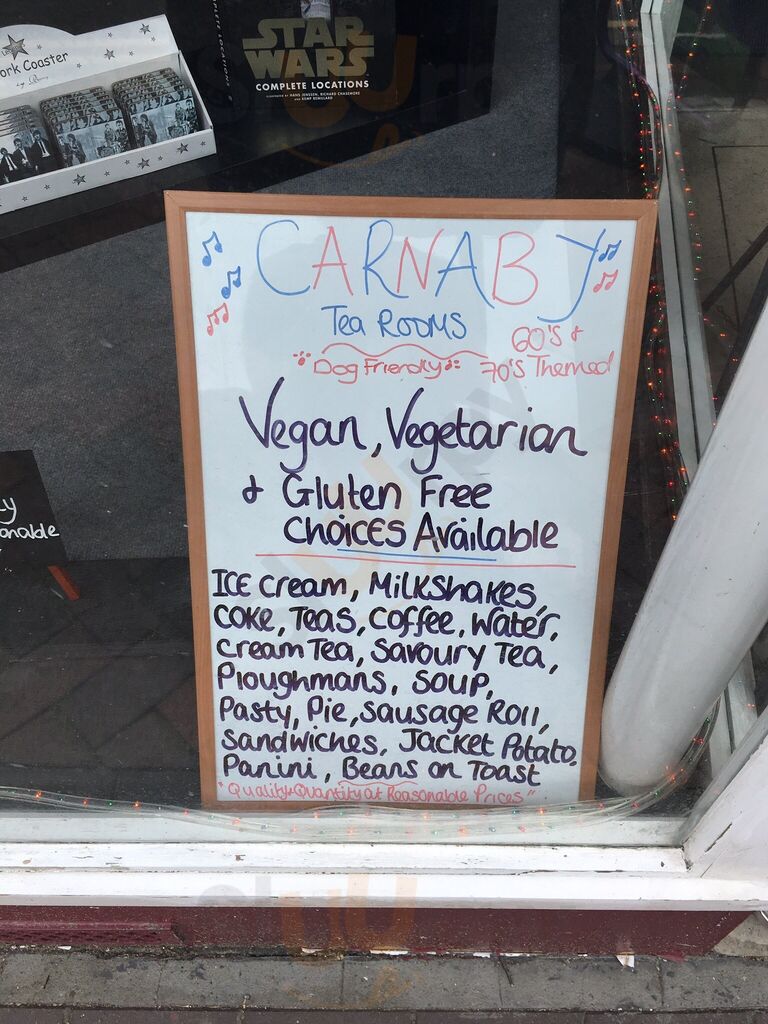 ork Coaster
STAR
WARS
COMPLETE LOCATIONS
CARNABY
Tea ROOMS
60's &
70's Themed
Dog Friendly
Vegan, Vegetarian
& Gluten Free
CHOICES Available
ICE cream, MilKshakes,
COKE, Teas, Coffee, Water,
Cream Tea, Savoury Tea,
Ploughmans, Soup,
Pasty, Pie, Sausage Roll,
Sandwiches, Jacket Potato,
Panini, Beans on Toast
"Quality & Quantity at Reasonable Prices"